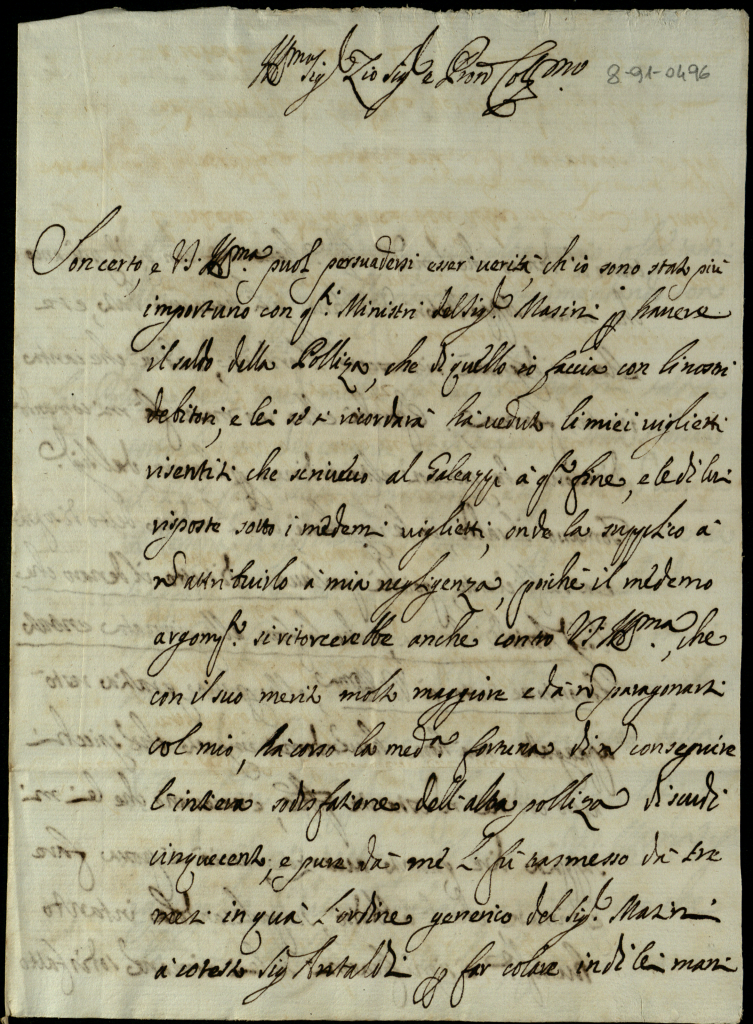 Ill.mo Sig. Zio Sig. e Pron Coll.mo
8-91-0496
Son certo, e V.S. Ill.ma puol persuadersi esser verità, ch'io sono stato più
importuno con q.ti Ministri del Sig.r Masini p havere
il saldo della Polliza, che di quello io faccia con li nostri
debitori, e lei se si ricordarà hà veduto li miei viglietti
risentiti che scrivevo al Galeazzi à q.to fine, e le di lui
risposte sotto i medemi viglietti, onde la supplico à
nō attribuirlo à mia negligenza, poiche il medemo
argom.to si ritorcerebbe anche contro V.S. Ill.ma, che
con il suo merito molto maggiore e da nō paragonarsi
col mio, hà corso la med.a fortuna di nō conseguire
l'intiera sodisfatione dell'altra polliza di scudi
cinquecento, e pure da mè L. fù trasmesso da tre
mesi in quà l'ordine generico del Sig.r Masini
à cotesto Sig. Antaldi p far colare in di lei mani